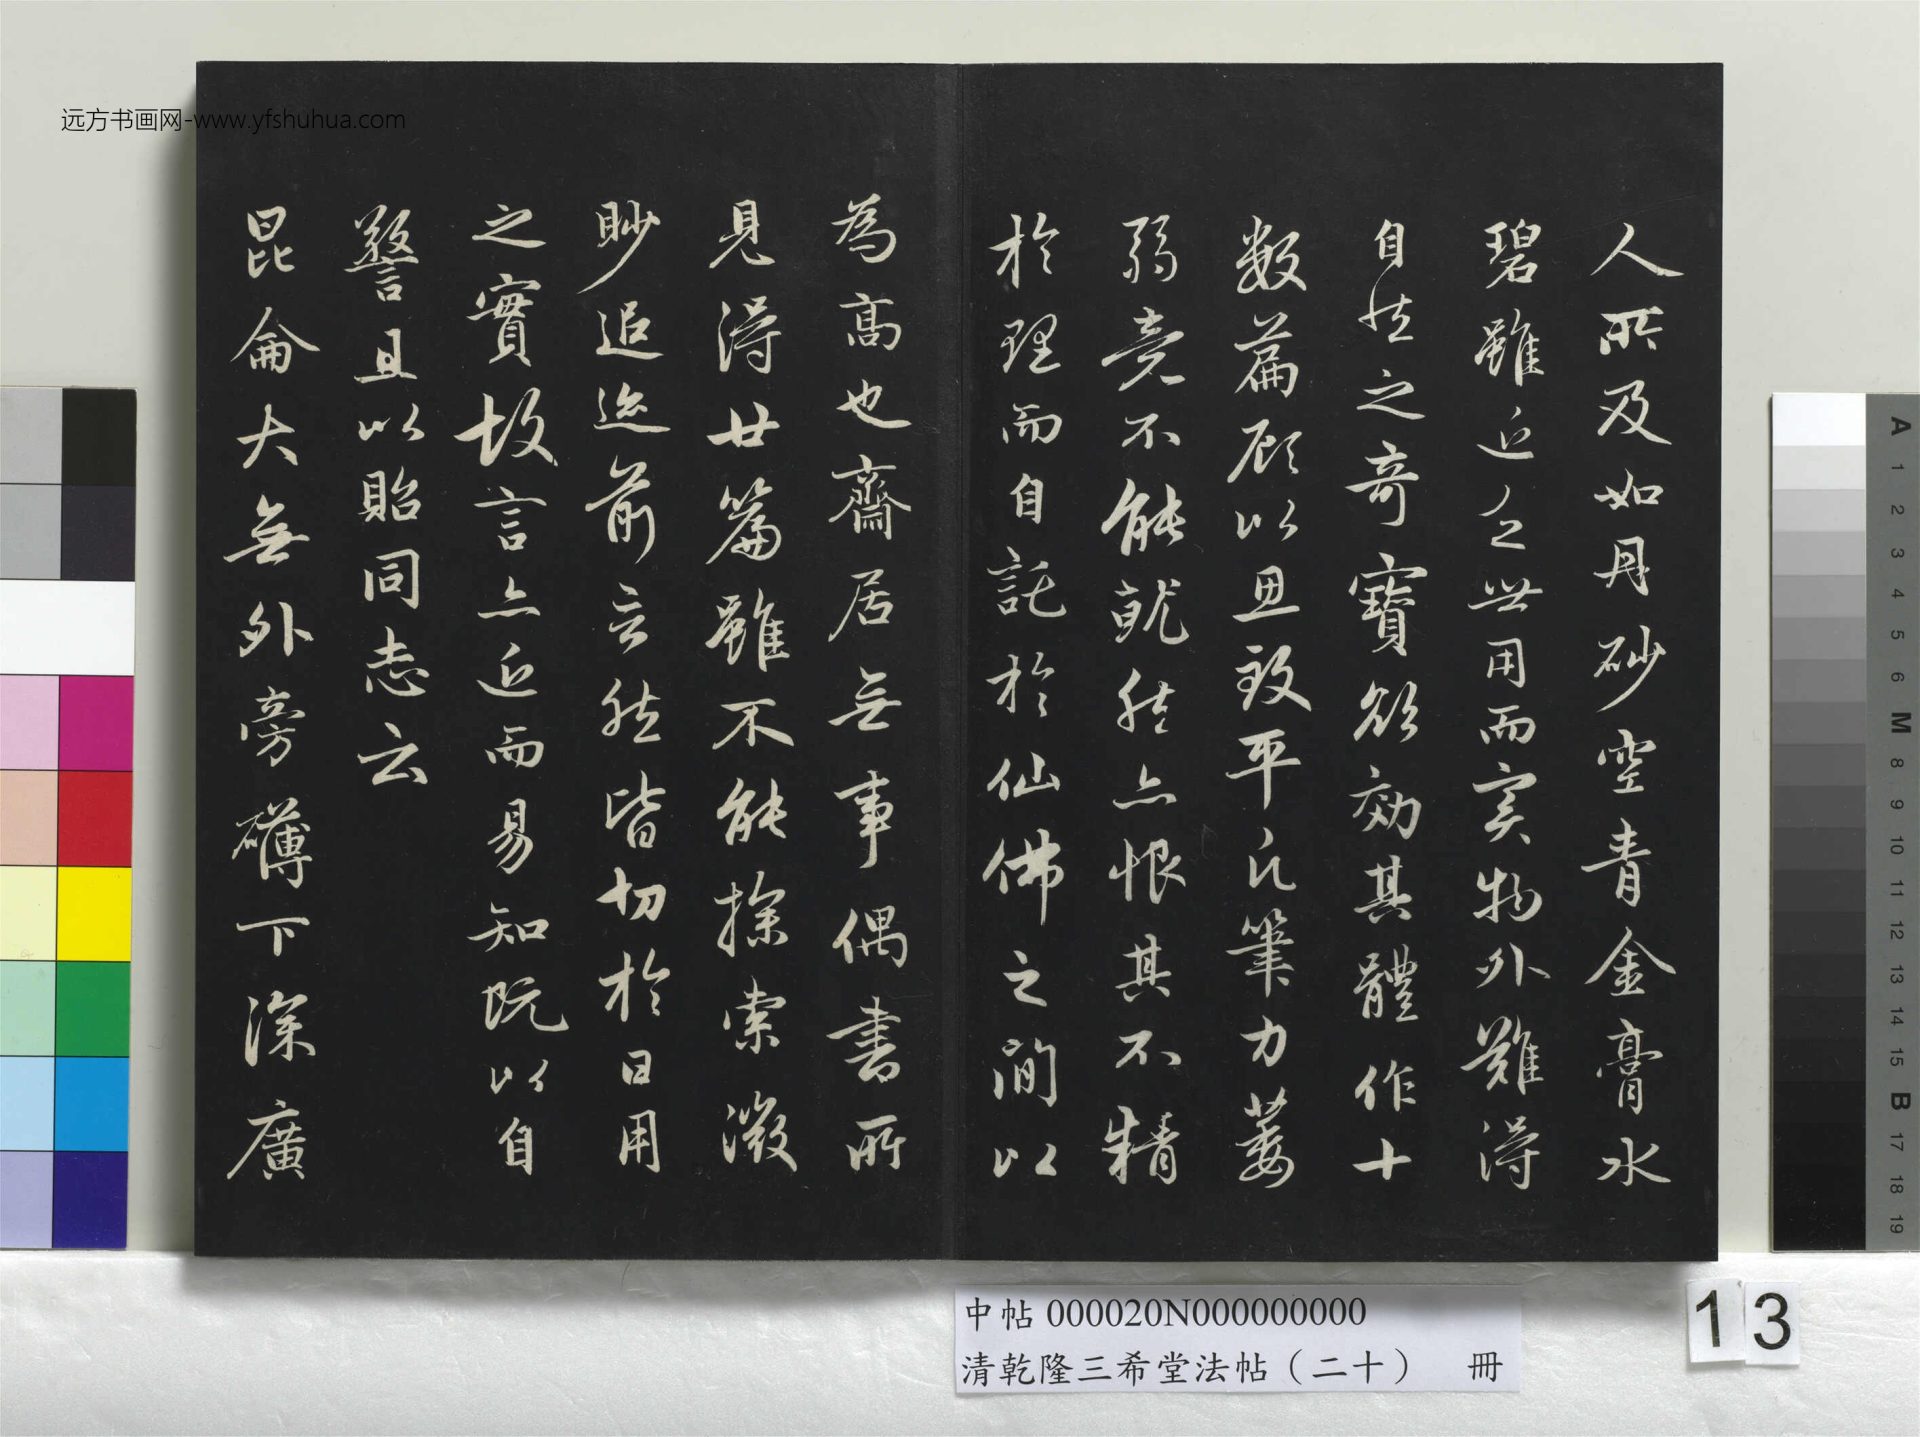 远方书画网-www.yfshuhua.com
人所及如丹砂空青金膏水
碧雖近乏世用而實物外難得
自然之奇寶欲效其體作十
數篇顧以思致平凡筆力萎
弱竟不能就然亦恨其不精
於理而自託於仙佛之間以
為高也齋居無事偶書所
見得廿篇雖不能探索微
眇追迹前言然皆切於日用
之實故言亦近而易知既以自
警且以貽同志云
昆侖大無外旁礴下深廣
中帖 000020N000000000
清乾隆三希堂法帖（二十） 冊
13
A
1
2
3
4
5
6
M
8
9
10
11
12
13
14
15
B
17
18
19